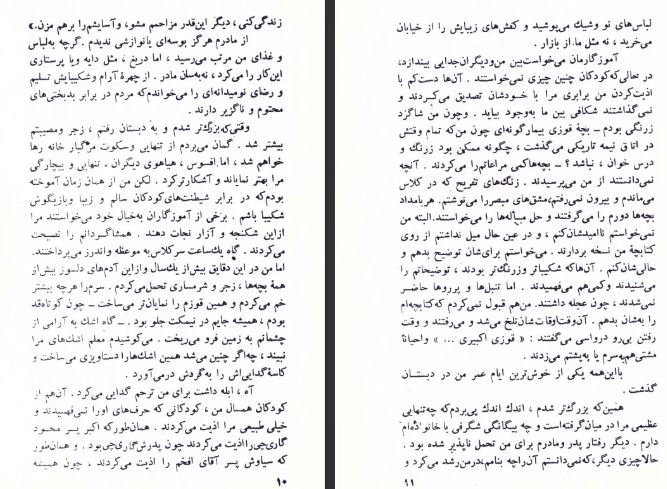 زندگی کنی ، دیگر این قدر مزاحم مشو، و آسایشم را برهم مزن.»
از مادرم هرگز بوسه‌ای یا نوازشی ندیدم . گرچه به لباس
و غذای من مرتب می‌رسید ، اما دریغ ، مثل دایه ویا پرستاری
این کار را می‌کرد ، نه بسان مادر . از چهرهٔ آرام وشکیبایش تسلیم
و رضای نومیدانه‌ای را می‌خواندم که مردم در برابر بدبختی‌های
محتوم و ناگزیر دارند .
وقتی که بزرگ‌تر شدم و به دبستان رفتم ، زجر و مصیبتم
بیشتر شد . گمان می‌بردم از تنهایی وسکوت مرگبار خانه رها
خواهم شد ، اما افسوس ، هیاهوی دیگران . تنهایی و بیچارگی
مرا بهتر نمایاند و آشکارتر کرد . لکن من از همان زمان آموخته
بودم که در برابر شیطنت‌های کودکان سالم و زیبا وبازیگوش
شکیبا باشم . برخی از آموزگاران به خیال خود می‌خواستند مرا
از این شکنجه و آزار نجات دهند . همشاگردانم را نصیحت
می‌کردند . گاه یک ساعت سر کلاس به موعظه واندرز می‌پرداختند.
اما من در این دقایق بیش از یک سال و از این آدم‌های دلسوز بیش از
همهٔ بچه‌ها ، زجر و شرمساری تحمل می‌کردم . سرم را هرچه بیشتر
خم می‌کردم و همین قوزم را نمایان‌تر می‌ساخت ــ چون کوتاه‌قد
بودم ، همیشه جایم در نیمکت جلو بود . ــ گاه اشک به آرامی از
چشمانم به زمین فرو می‌ریخت . می‌کوشیدم معلم اشک‌های مرا
نبیند ، چه اگر چنین می‌شد همین اشک‌ها را دستاویزی می‌ساخت و
کاسهٔ گدایی‌اش را به گردش درمی‌آورد .
آه ، ابله داشت برای من ترحم گدایی می‌کرد . آن هم از
کودکان همسال من ، کودکانی که حرف‌های اورا نمی‌فهمیدند و
خیلی طبیعی مرا اذیت می‌کردند . همان‌طور که اکبر پسر محمود
گاری‌چی را اذیت می‌کردند چون پدرش گاری‌چی بود . و همان‌طور
که سیاوش پسر آقای افخم را اذیت می‌کردند ، چون همیشه
۱۰
لباس‌های نو وشیک می‌پوشید و کفش‌های زیبایش را از خیابان
می‌خرید ، نه مثل ما از بازار .
آموزگارمان می‌خواست بین من ودیگران جدایی بیندازد،
در حالی که کودکان چنین چیزی نمی‌خواستند . آن‌ها دست کم با
اذیت کردن من برابری مرا با خودشان تصدیق می‌کردند و
نمی‌گذاشتند شکافی بین ما به وجود بیاید . وچون من شاگرد
زرنگی بودم ــ بچهٔ قوزی بیمار گونه‌ای چون من که تمام وقتش
در اتاق نیمه تاریکی می‌گذشت ، چگونه ممکن بود زرنگ و
درس خوان ، نباشد ؟ ــ بچه‌ها کمی مراعاتم را می‌کردند . آنچه
نمی‌دانستند از من می‌پرسیدند . زنگ‌های تفریح که در کلاس
می‌ماندم و بیرون نمی‌رفتم، مشق‌های مبصر را می‌نوشتم. هر بامداد
بچه‌ها دورم را می‌گرفتند و حل مسأله‌ها را می‌خواستند. البته من
نمی‌خواستم ناامیدشان کنم ، و در عین حال میل نداشتم از روی
کتابچهٔ من نسخه بردارند . می‌خواستم برای‌شان توضیح بدهم و
حالی‌شان کنم . آن‌ها که شکیباتر وزرنگ‌تر بودند ، توضیحاتم را
می‌شنیدند وکمی هم می‌فهمیدند . اما تنبل‌ها و پرروها حاضر
نمی‌شدند ، چون عجله داشتند. من هم قبول نمی‌کردم که کتابچه‌ام
را به‌شان بدهم . آن وقت اوقات‌شان تلخ می‌شد و می‌رفتند و وقت
رفتن بی‌رو درواسی می‌گفتند : « قوزی اکبیری ... » و احیاناً
مشتی هم به سرم یا به پشتم می‌زدند .
با این همه یکی از خوش‌ترین ایام عمر من در دبستان
گذشت .
همین که بزرگ‌تر شدم ، اندک اندک پی بردم که چه تنهایی
عظیمی مرا در میان گرفته است و چه بیگانگی شگرفی با خانواده‌ام
دارم . دیگر رفتار پدر ومادرم برای من تحمل ناپذیر شده بود .
حالا چیزی دیگر، که نمی‌دانستم آن را چه بنامم، در من رشد می‌کرد و
۱۱